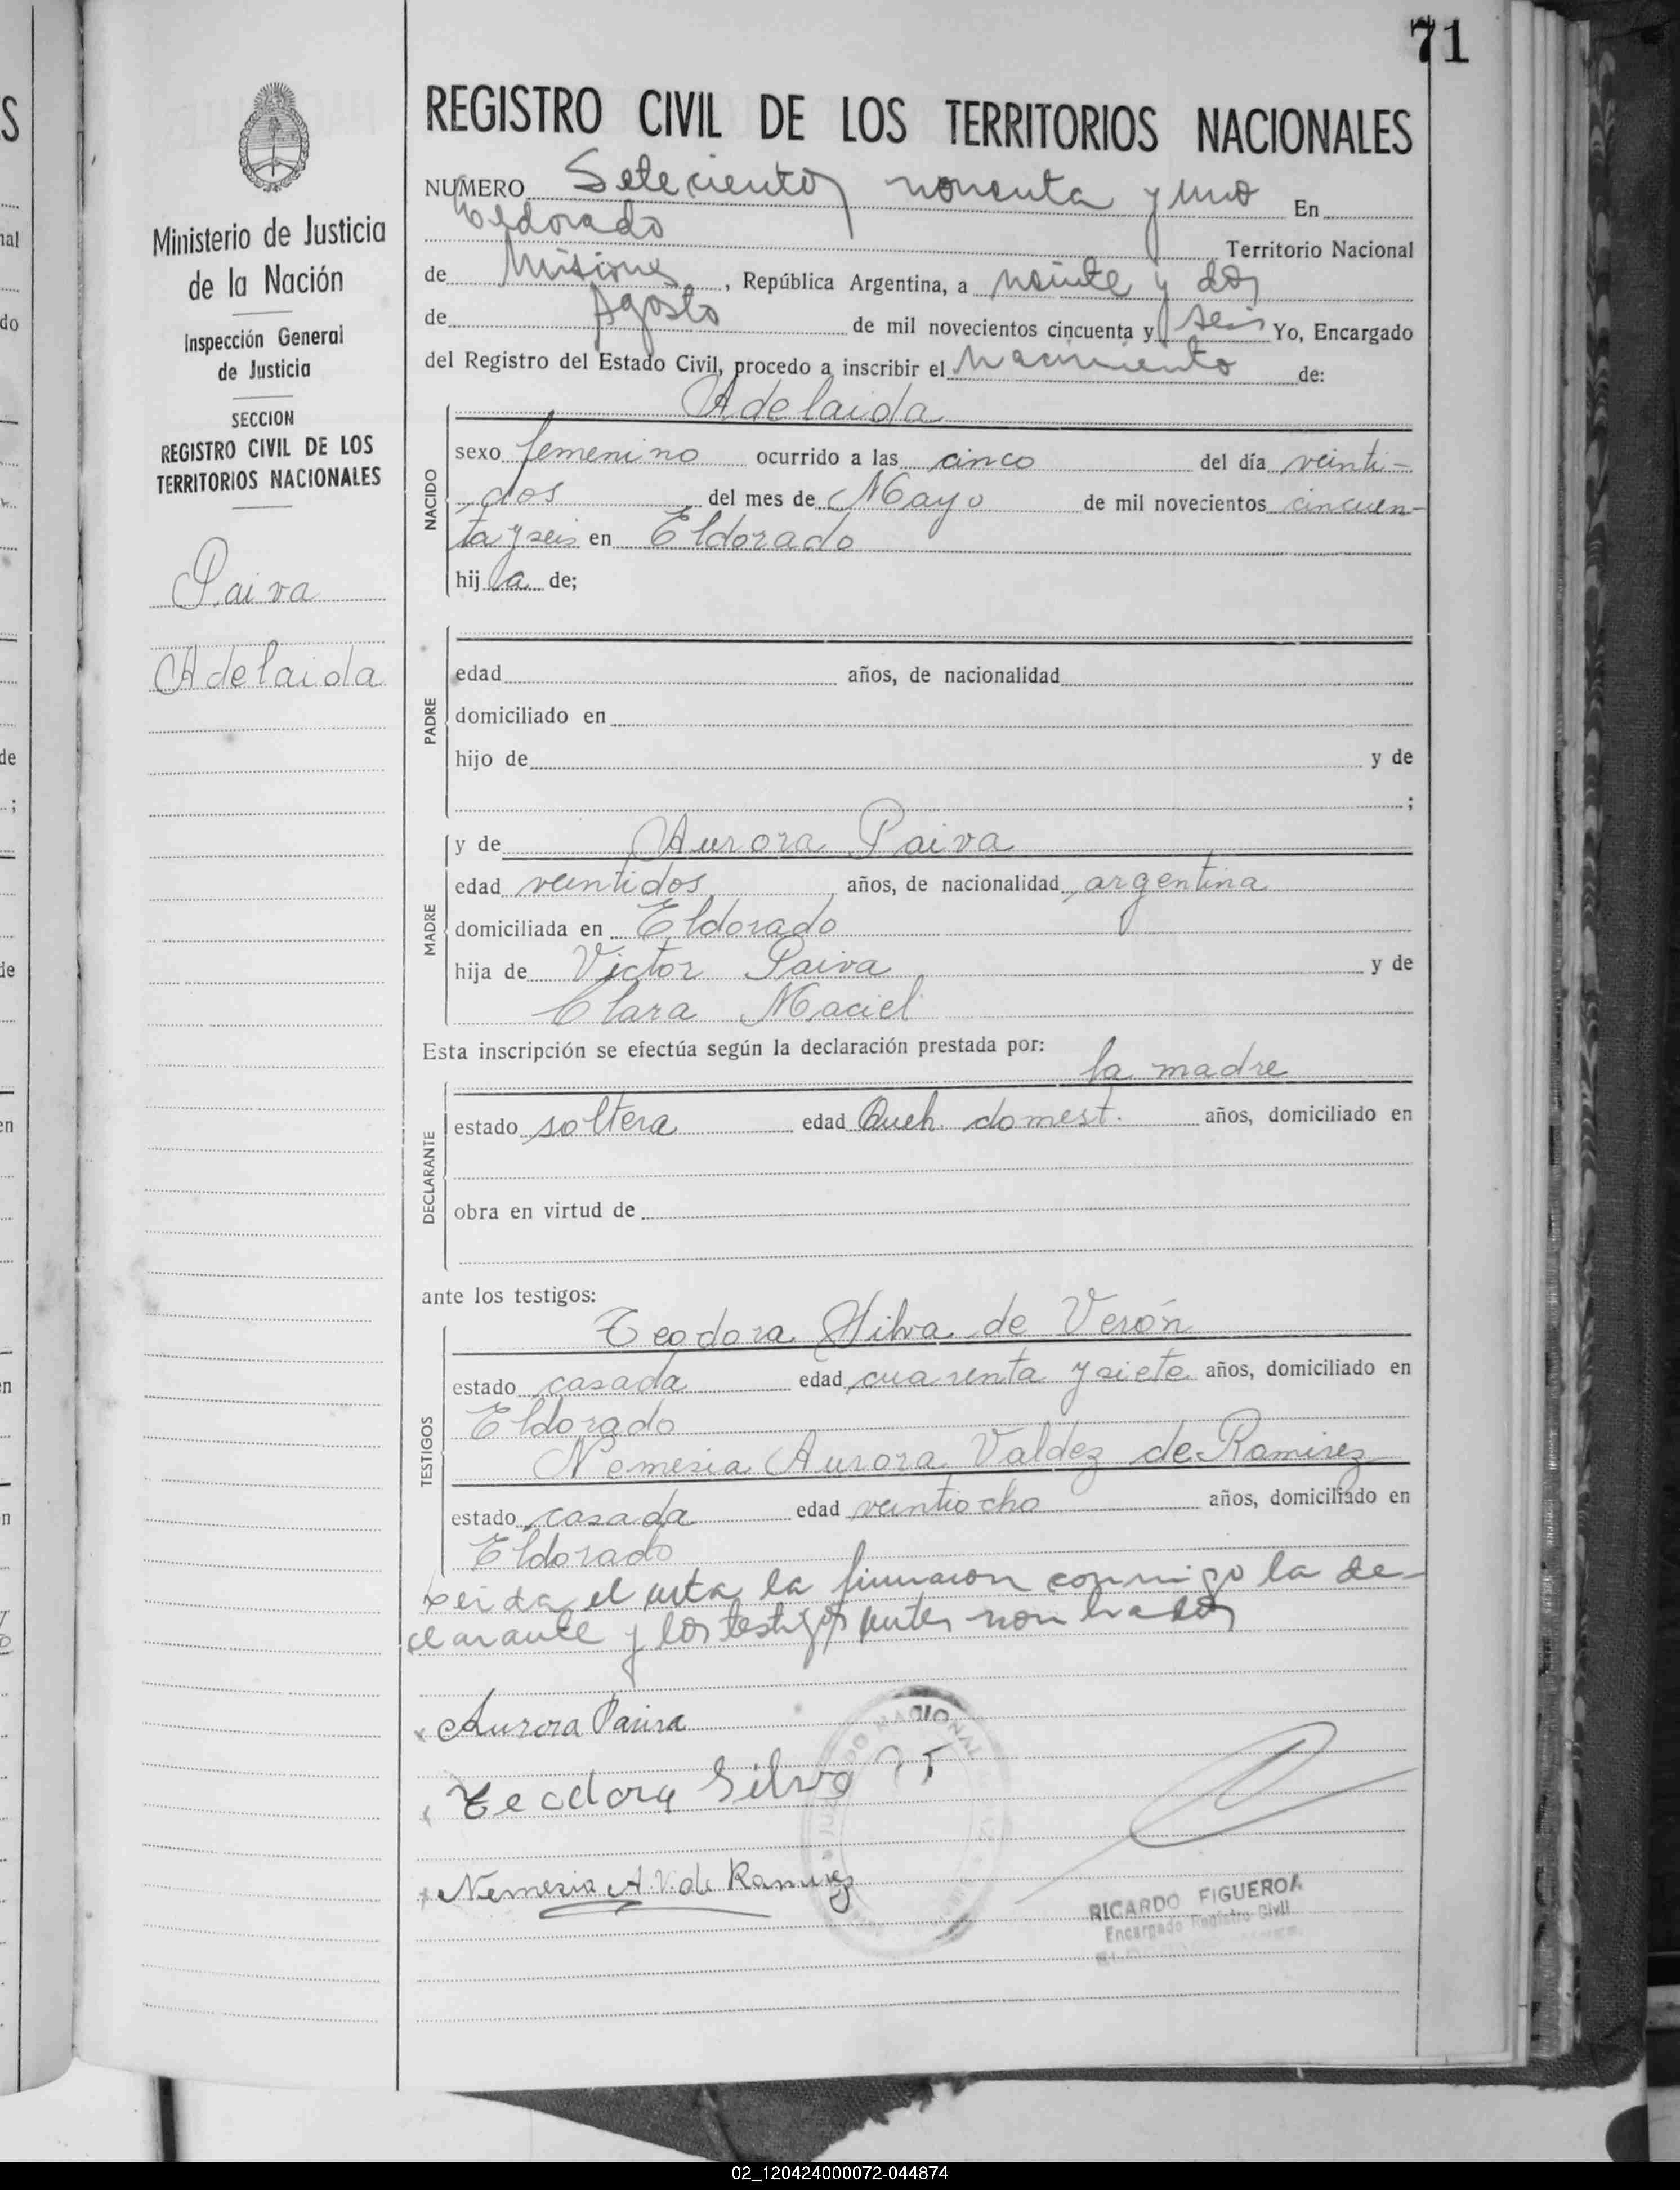 71
REGISTRO CIVIL DE LOS TERRITORIOS NACIONALES
NUMERO Setecientos noventa y uno En
Eldorado Territorio Nacional
de Misiones, República Argentina, a veinte y dos
de Agosto de mil novecientos cincuenta y seis Yo, Encargado
del Registro del Estado Civil, procedo a inscribir el Nacimiento de:
Ministerio de Justicia
de la Nación
Inspección General
de Justicia
SECCION
REGISTRO CIVIL DE LOS
TERRITORIOS NACIONALES
Paiva
Adelaida
NACIDO
Adelaida
sexo femenino ocurrido a las cinco del día veinti-
dos del mes de Mayo de mil novecientos cincuen-
ta y seis en Eldorado
hij a de;
PADRE
edad años, de nacionalidad
domiciliado en
hijo de y de
;
MADRE
y de Aurora Paiva
edad veintidos años, de nacionalidad argentina
domiciliada en Eldorado
hija de Victor Paiva y de
Clara Maciel
Esta inscripción se efectúa según la declaración prestada por:
la madre
DECLARANTE
estado soltera edad Queh. domest. años, domiciliado en
obra en virtud de
ante los testigos:
TESTIGOS
Teodora Silva de Verón
estado casada edad cuarenta y siete años, domiciliado en
Eldorado
Nemesia Aurora Valdez de Ramirez
estado casada edad veintiocho años, domiciliado en
Eldorado
Leida el acta la firmaron conmigo la de-
clarante y los testigos antes nombrados
Aurora Paiva
Teodora Silva
Nemesia A. V. de Ramirez
RICARDO FIGUEROA
Encargado Registro Civil
02_120424000072-044874